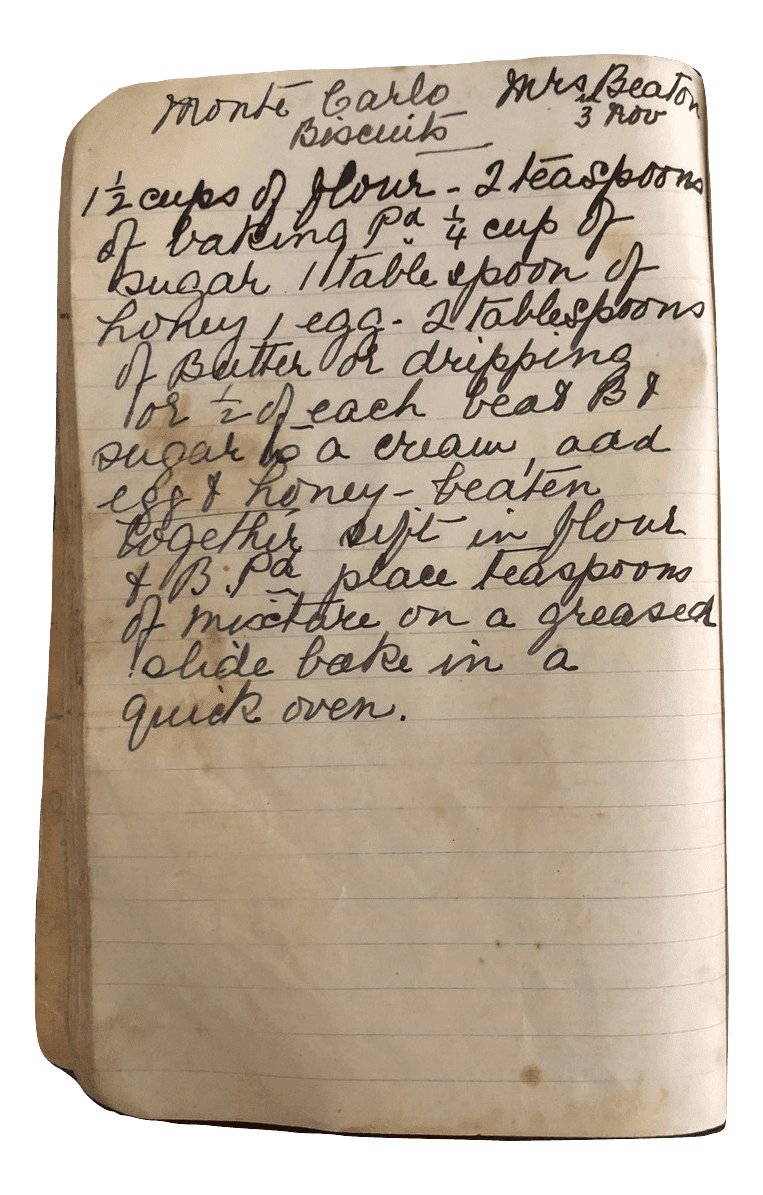 Monte Carlo Mrs Beaton
Biscuits 3 Nov
1 1/2 cups of flour - 2 teaspoons
of baking Pd 1/4 cup of
sugar 1 tablespoon of
honey 1 egg - 2 tablespoons
of Butter or dripping
or 1/2 of each beat B &
sugar to a cream, add
egg & honey - beaten
together sift in flour
& B. Pd place teaspoons
of mixture on a greased
slide bake in a
quick oven.